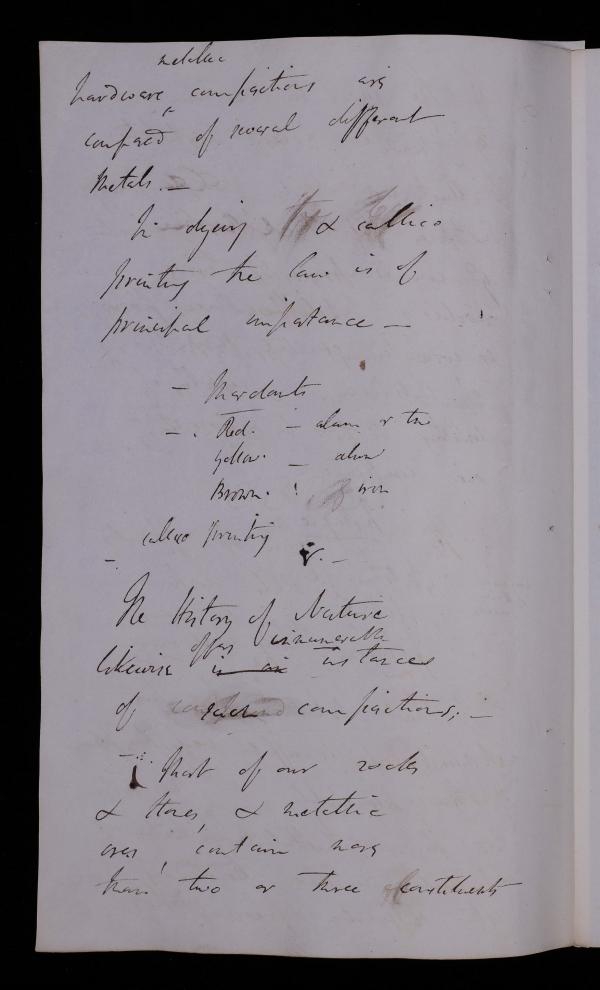 metallic
hardware ^ compositions are
composed of several different
Metals. —
In dying & callico
printing the law is of
principal importance —
— Mordants
— . Red. — alum or tin
Yellow. — alum
Brown. iron
callico printing
The History of Nature
offers innumerable
likewise is an instances
of such compositions; —
Most of our rocks
& stones, & metallic
ores, contain more
than two or three constituents